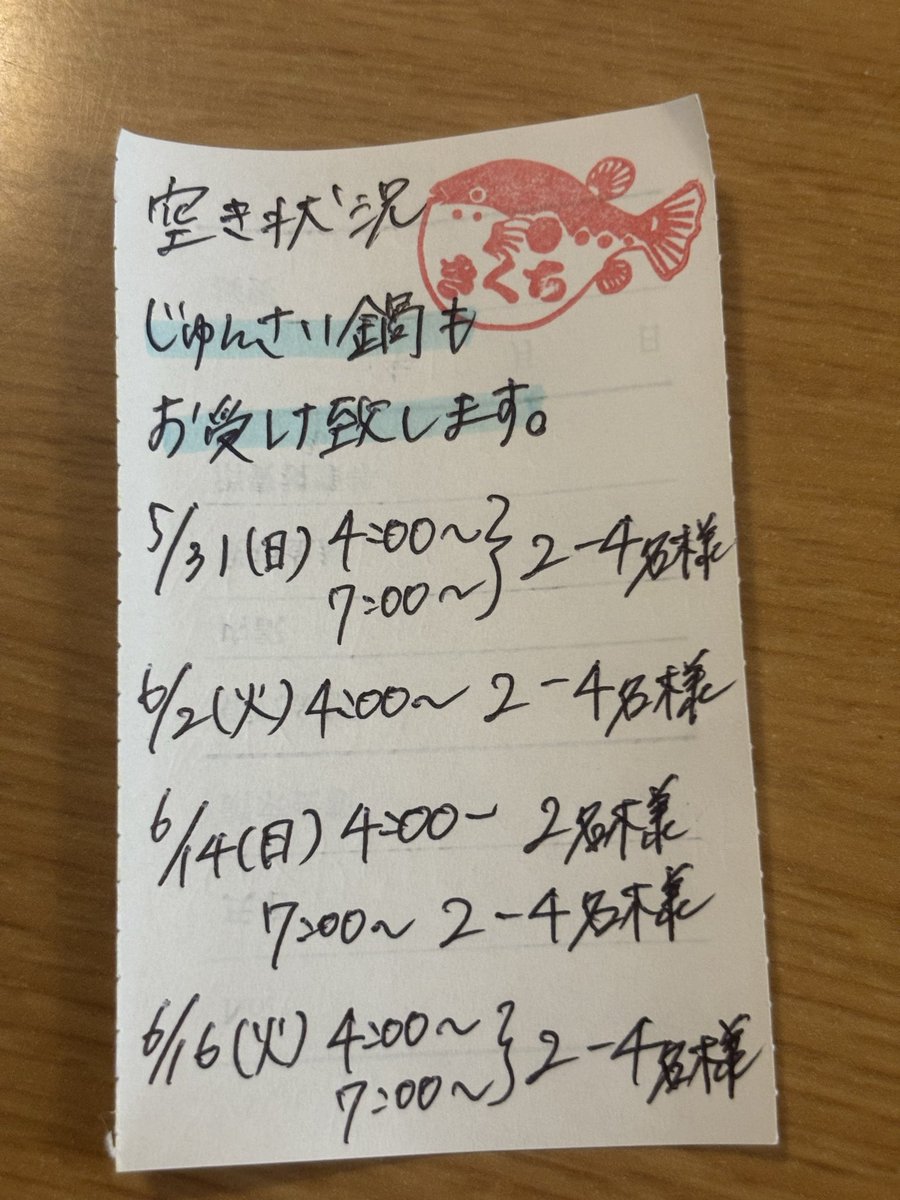 空き状況
きくち
じゅんさい鍋も
お受け致します。
5/31(日) 4:00〜
7:00〜 } 2-4名様
6/2(火) 4:00〜 2-4名様
6/14(日) 4:00〜 2名様
7:00〜 2-4名様
6/16(火) 4:00〜
7:00〜 } 2-4名様